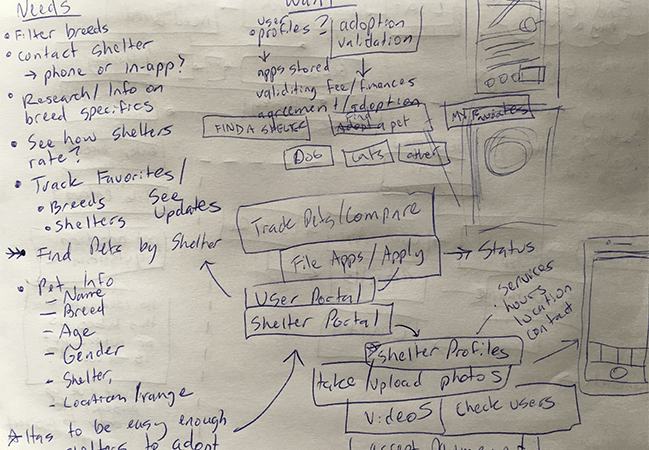 Needs
• Filter breeds
• contact shelter
→ phone or in-app?
• Research/Info on
breed specifics
• See how shelters
rate?
• Track Favorites/
• Breeds
• Shelters
See
Updates
Find Pets by Shelter
• Pet Info
- Name
- Breed
- Age
- Gender
- Shelter,
- Location/range
to be easy enough
to adopt
Want
user
• profiles?
adoption
validation
apps stored
validiting fee/finances
agreement/adoption
FIND A SHELTER
Find
Adopt a pet
MY Favorites
DOG
Cats
other
Track Pets/Compare
File Apps/Apply
→ Status
User Portal
Shelter Portal
• Services
hours
location
contact
Shelter Profiles
take/upload photos
Videos
Check users
accept